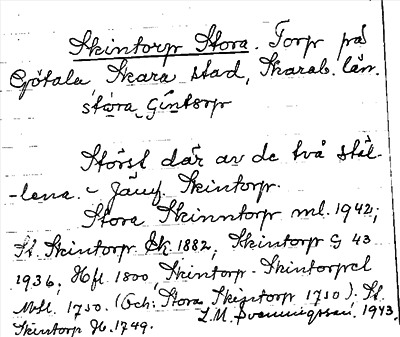 Skintorp Stora. Torp på
Götala Skara stad, Skarab. län.
stωra ʃintorp
Störst där av de två stäl-
-lena. - Jämf. Skintorp.
Stora Skinntorp ml. 1942;
St. Skintorp Ek 1882, Skintorp G 43
1936, Hfl 1800, Skintorp - Skintorpel
Mtl. 1750. (Och: Stora Skintorp 1750). St.
Skintorp Hb. 1749. L.M. Svenningsson. 1943.